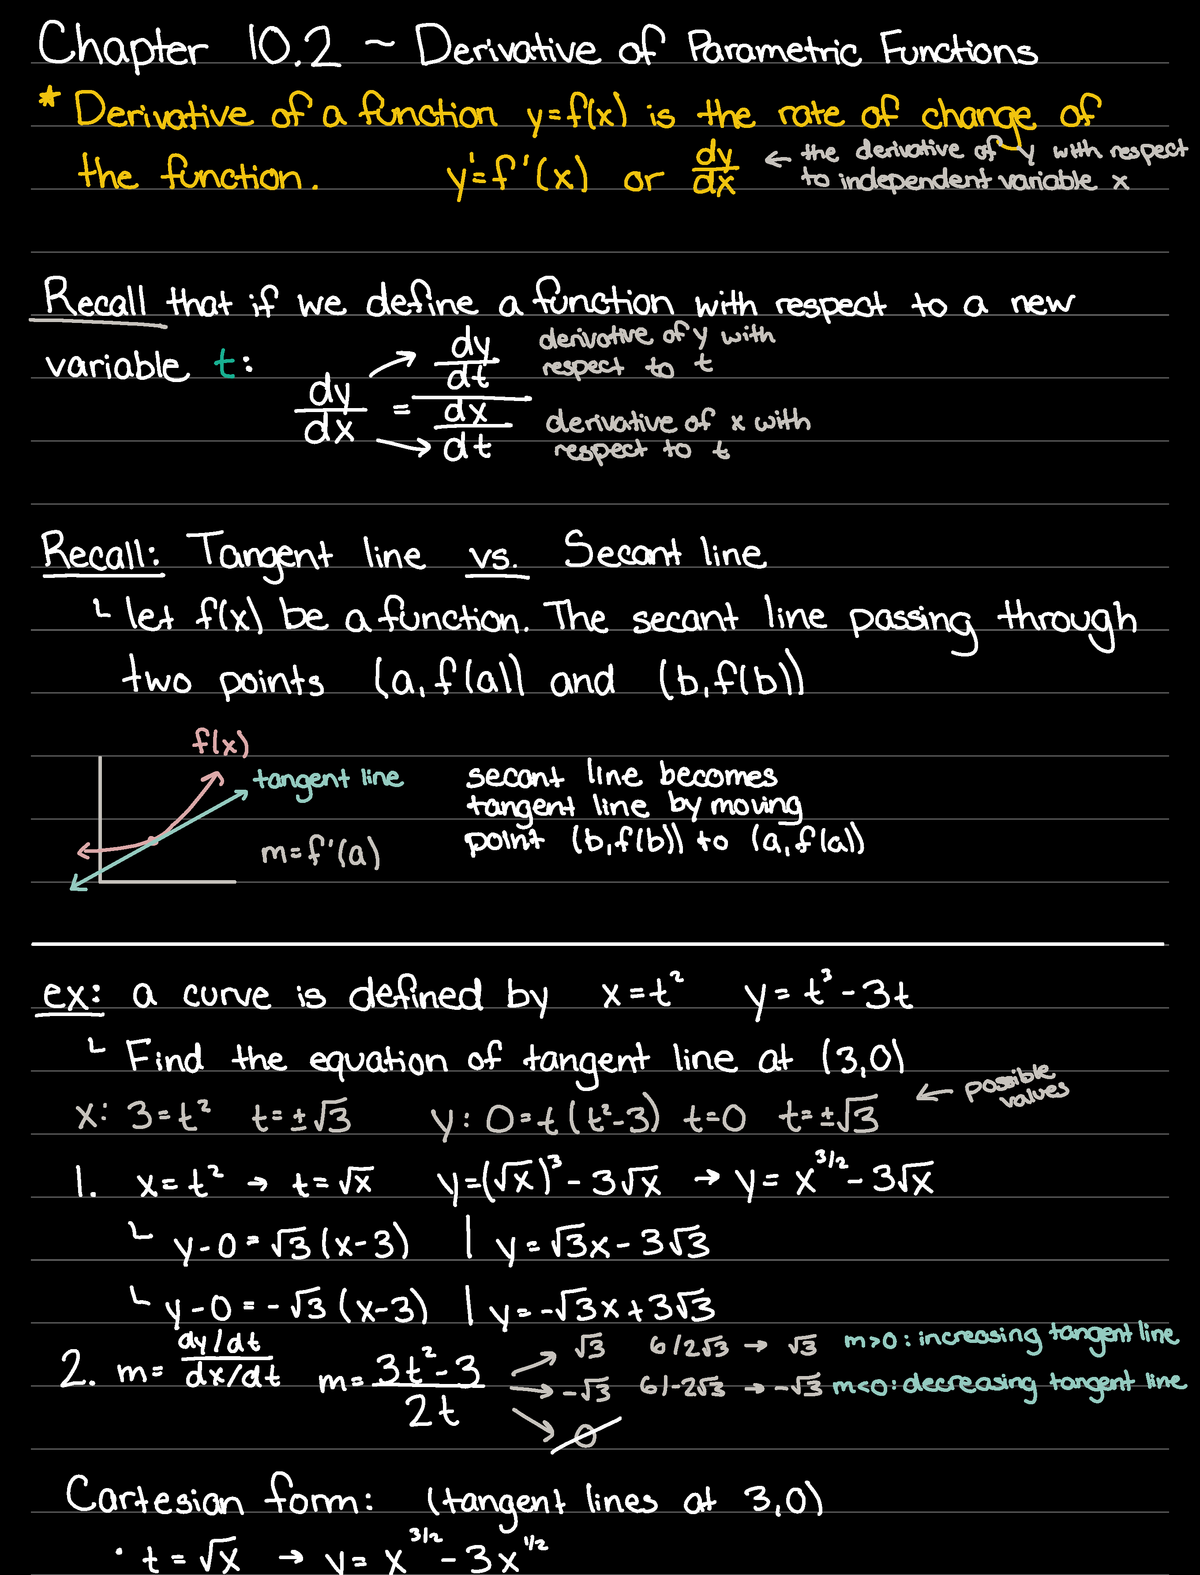 Chapter 10.2 ~ Derivative of Parametric Functions
* Derivative of a function y=f(x) is the rate of change of
the function. y'=f'(x) or dy/dx ← the derivative of y with respect
to independent variable x
Recall that if we define a function with respect to a new
variable t:
dy/dx = (dy/dt)/(dx/dt)
derivative of y with
respect to t
derivative of x with
respect to t
Recall: Tangent line vs. Secant line
└ let f(x) be a function. The secant line passing through
two points (a,f(a)) and (b,f(b))
f(x)
tangent line
m=f'(a)
secant line becomes
tangent line by moving
point (b,f(b)) to (a,f(a))
ex: a curve is defined by x=t² y=t³-3t
└ Find the equation of tangent line at (3,0)
x: 3=t² t=±√3 y: 0=t(t²-3) t=0 t=±√3 ← possible
values
1. x=t² → t=√x y=(√x)³-3√x → y=x^3/2-3√x
└ y-0=√3(x-3) | y=√3x-3√3
└ y-0=-√3(x-3) | y=-√3x+3√3
2. m= (dy/dt)/(dx/dt) m= (3t²-3)/2t
→ √3 6/2√3 → √3 m>0: increasing tangent line
→ -√3 6/-2√3 → -√3 m<0: decreasing tangent line
→ 0
Cartesian form: (tangent lines at 3,0)
· t=√x → y=x^3/2-3x^1/2